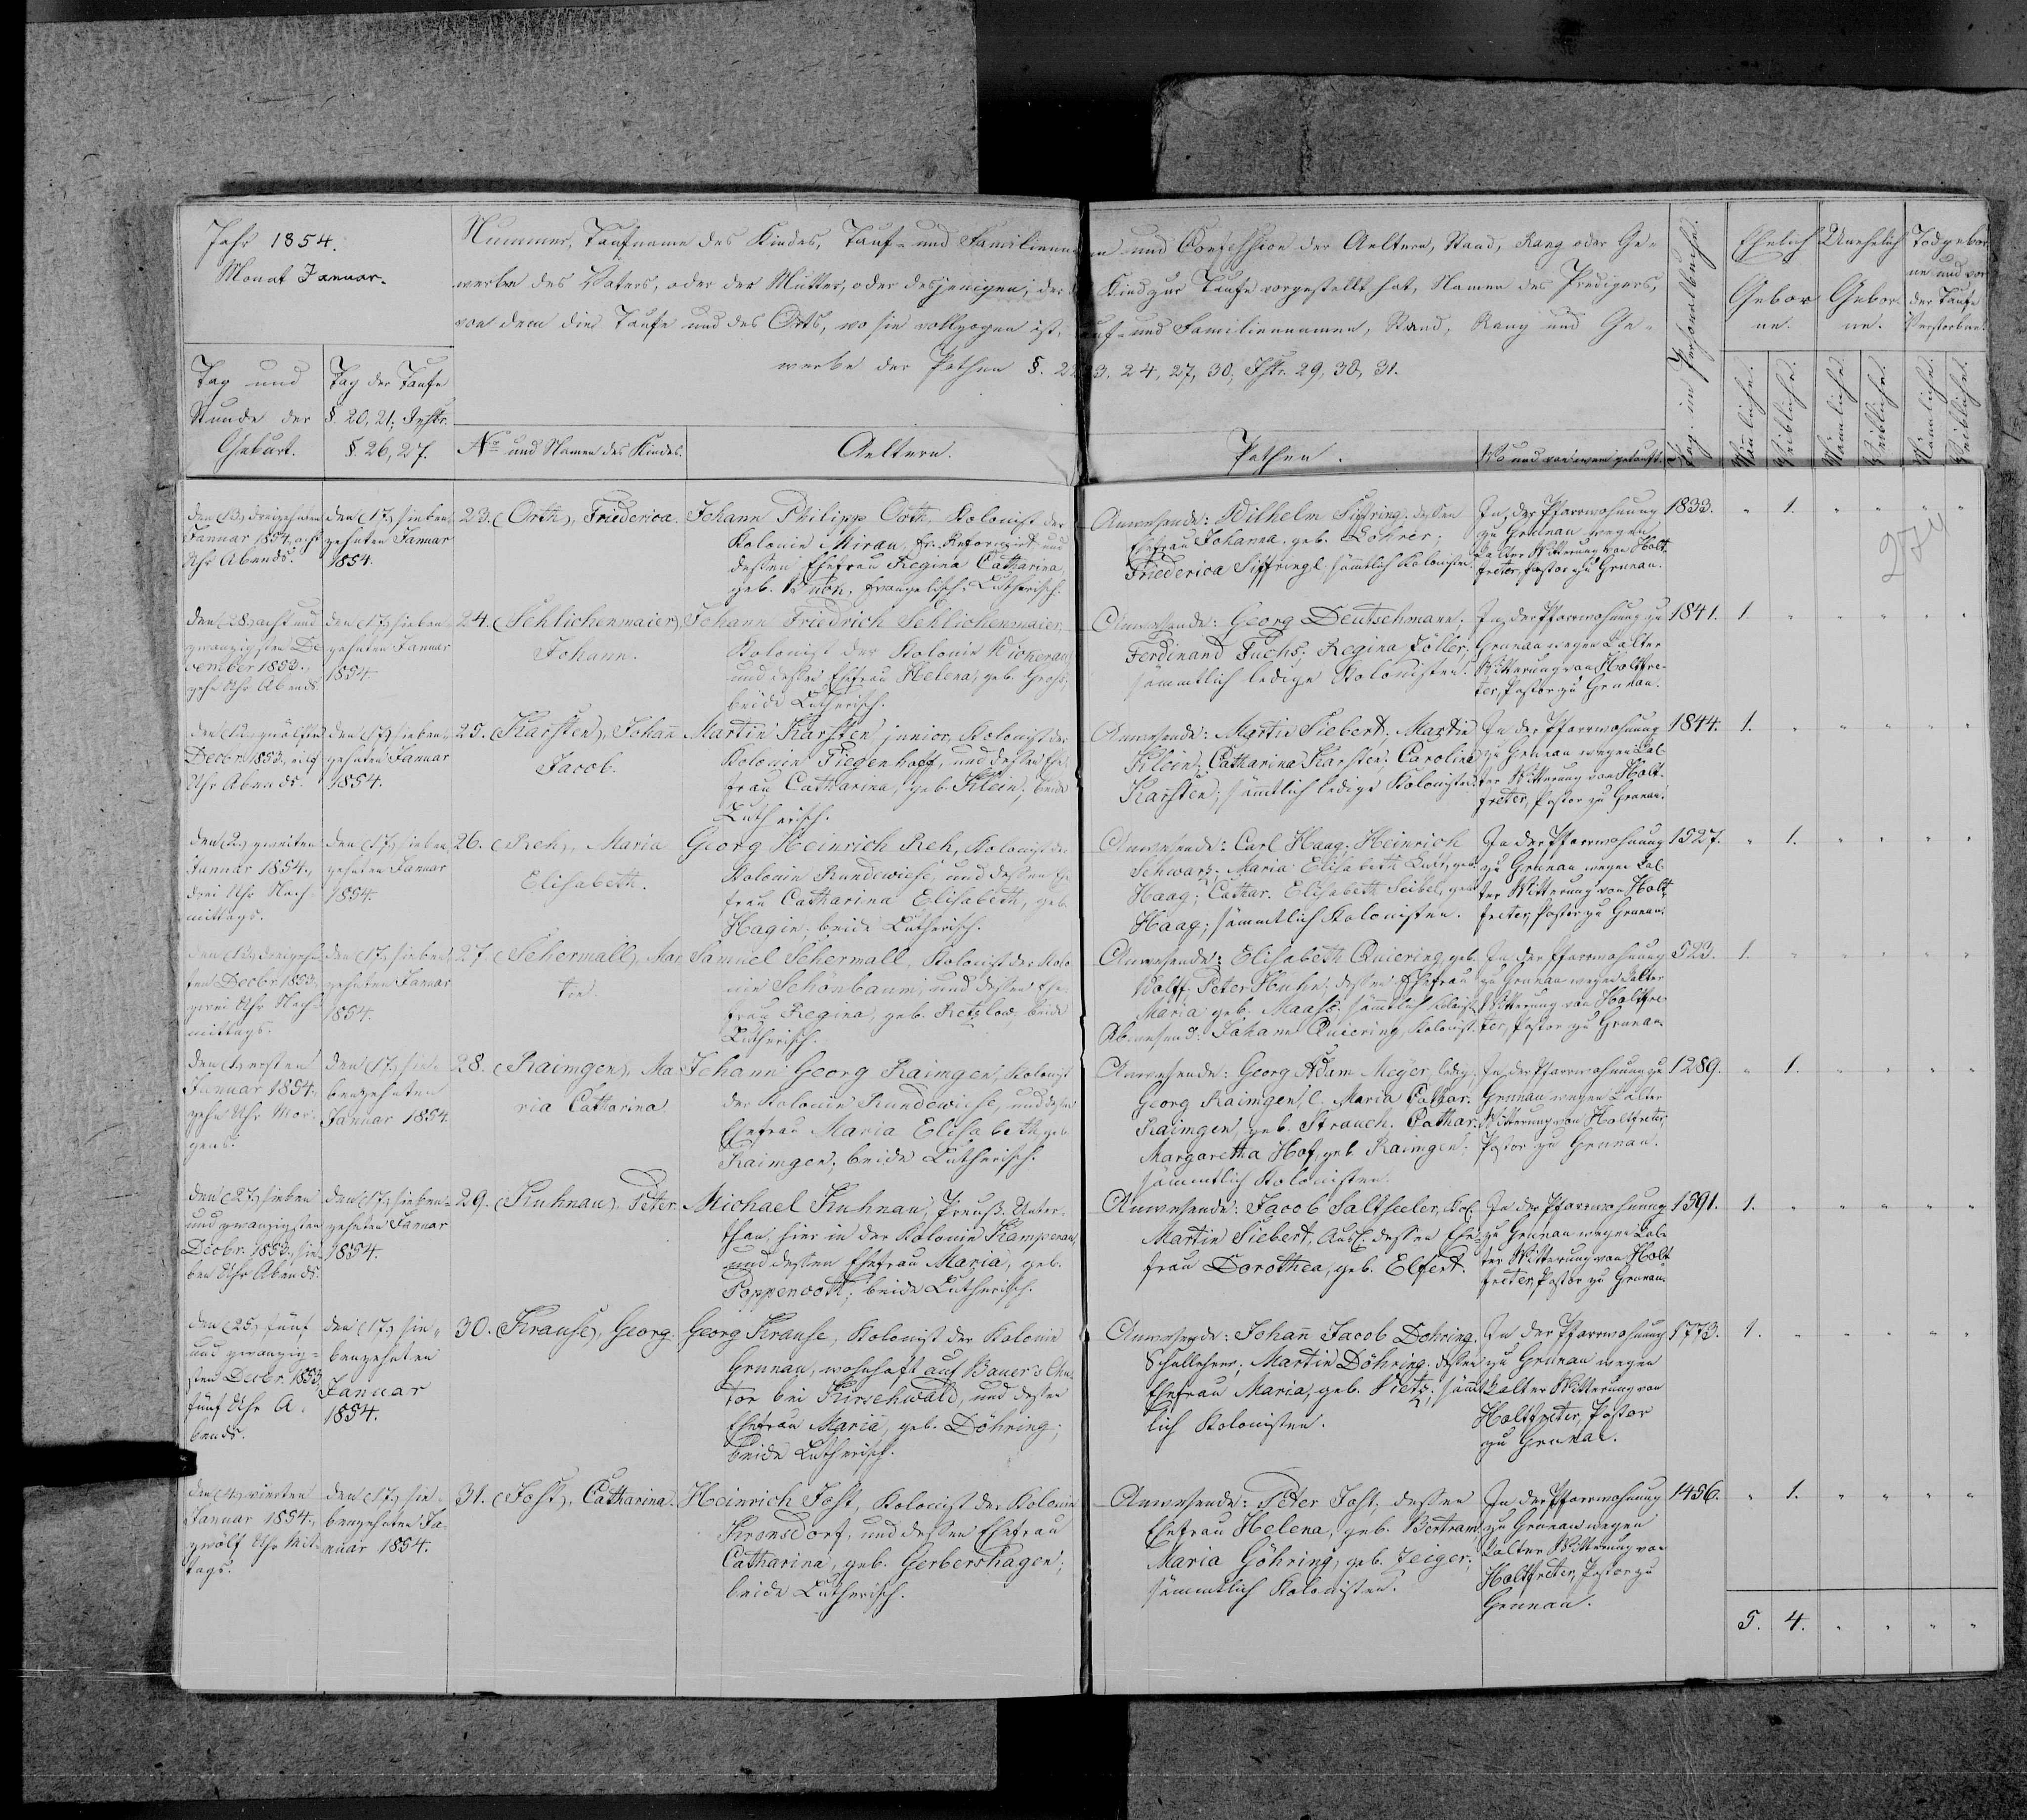 Jahr 1854.
Monat Januar.
Nummer, Taufname des Kindes, Tauf- und Familienna-
men und Confession der Aeltern, Stand, Rang oder Ge-
werbe des Vaters, oder der Mutter, oder desjenigen, der das
Kind zur Taufe vorgestellt hat, Namen des Predigers,
von dem die Taufe und des Orts, wo sie vollzogen ist,
Tauf- und Familiennamen, Stand, Rang und Ge-
werbe der Pathen §. 22
23. 24, 27, 30, Istr. 29, 30, 31.
Tag und
Stunde der
Geburt.
Tag der Taufe
§ 20, 21; Instr.
§ 26, 27.
No und Namen des Kindes.
Aeltern.
Pathen.
Wo und von wem getauft.
Pag. im Personalbuche.
Ehelich
Gebor
ne.
Unehelich
Gebor
ne.
Todgebor
ne und vor
der Taufe
Verstorbne.
Männliche.
Weibliche.
Männliche.
Weibliche.
Männliche.
Weibliche.
den (13) dreizehnten
Januar 1854, acht
Uhr Abends.
den (17) sieben-
zehnten Januar
1854.
23. (Orth), Friederica.
Johann Philipp Orth, Kolonist der
Kolonie Mirau, Ev. Reformirt und
dessen Ehefrau Regina Catharina
geb. Evangelisch-Lutherisch.
Anwesende: Wilhelm dessen
Ehefrau Johanna, geb. Lohrer;
Friederica Siffringl. sämmtlich Kolonisten.
In der Pfarrwohnung
zu Grunau wegen
kalter Witterung von Holt-
freter, Pastor zu Grunau.
1833.
" 1. " " " "
274
den (28) acht und
zwanzigsten De-
cember 1853.,
zehn Uhr Abends.
den (17) sieben-
zehnten Januar
1854
24. (Schlichenmaier),
Johann.
Johann Friedrich Schlichenmaier,
Kolonist der Kolonie Wickerau,
und dessen Ehefrau Helena, geb. Gross,
beide Lutherisch.
Anwesende: Georg Deutschmann;
Ferdinand Fuchs; Regina Föller;
sämmtlich ledige Kolonisten.
In der Pfarrwohnung zu
Grunau wegen kalter
Witterung von Holtfre-
ter, Pastor zu Grunau.
1841.
1 " " " " "
den (12) zwölften
Decbr. 1853, eilf
Uhr Abends.
den (17) sieben-
zehnten Januar
1854.
25. (Karsten), Johann
Jacob.
Martin Karsten junior, Kolonist der
Kolonie Tiegenhoff, und dessen Ehe-
frau Catharina, geb. Klein; beide
Lutherisch.
Anwesende: Martin Siebert; Martin
Klein; Catharina Karsten; Carolina
Karsten; sämmtlich ledige Kolonisten.
In der Pfarrwohnung
zu Grunau wegen kal-
ter Witterung von Holt-
freter, Pastor zu Grunau.
1844.
1. " " " " "
den (2) zweiten
Januar 1854.,
drei Uhr Nach-
mittags.
den (17) sieben-
zehnten Januar
1854.
26. (Reh), Maria
Elisabeth.
Georg Heinrich Reh, Kolonist der
Kolonie Rundewiese, und dessen Ehe-
frau Catharina Elisabeth, geb.
Hagin; beide Lutherisch.
Anwesende: Carl Haag; Heinrich
Schwarz; Maria Elisabeth Luft, geb.
Haag; Cathar. Elisabeth Seibel, geb.
Haag; sämmtlich Kolonisten.
In der Pfarrwohnung
zu Grunau wegen kal-
ter Witterung von Holt-
freter, Pastor zu Grunau.
1527.
" 1. " " " "
ten Decbr. 1853,
zwei Uhr Nach-
mittags.
den (17) sieben-
zehnten Januar
1854.
27. (Schermall), Mar
tin.
Samuel Schermall, Kolonist der Kolo-
nie Schönbaum, und dessen Ehe-
frau Regina, geb. Retzlow, beide
Lutherisch.
Anwesende: Elisabeth Quiering, geb.
Wolff; Peter Huhn; dessen Ehefrau
Maria geb. Maass; sämmtlich Kolonist.
Abwesend: Johann Quiering, Kolonist.
In der Pfarrwohnung
zu Grunau wegen kalter
Witterung von Holtfre-
ter, Pastor zu Grunau.
523.
1. " " " " "
den (1) ersten
Januar 1854,
zehn Uhr Mor-
gens.
den (17) sie-
benzehnten
Januar 1854.
28. (Raimgen), Ma-
ria Catharina
Johann Georg Raimgen, Kolonist
der Kolonie Rundewiese, und dessen
Ehefrau Maria Elisabeth, geb.
Raimgen; beide Lutherisch.
Anwesende: Georg Adam Meyer, ledig;
Georg Raimgen, l. Maria Cathar.
Raimgen, geb. Strauch. Cathar.
Margaretha Hof, geb. Raimgen;
sämmtlich Kolonisten.
In der Pfarrwohnung zu
Grunau, wegen kalter
Witterung von Holtfreter,
Pastor zu Grunau.
1289.
" 1. " " " "
den (27) sieben
und zwanzigsten
Decbr. 1853, sie-
ben Uhr Abends.
den (17) sieben-
zehnten Januar
1854.
29. (Kuhnau), Peter.
Michael Kuhnau, Preuß. Unter-
than, hier in der Kolonie Kampenau,
und dessen Ehefrau Maria, geb.
beide Lutherisch.
Anwesende: Jacob Saltseeler, Kol.
Martin Siebert, Ausl. dessen Ehe-
frau Dorothea, geb. Elfert.
In der Pfarrwohnung
zu Grunau wegen kal-
ter Witterung von Holt-
freter, Pastor zu Grunau.
1591.
1. " " " " "
den (25) fünf
und zwanzig-
sten Decbr. 1853,
fünf Uhr A-
bends.
den (17) sie-
benzehnten
Januar
1854.
30. (Krause), Georg.
Georg Krause, Kolonist der Kolonie
Grunau, wohnhaft auf Bauer's Chu-
tor bei Kirschwald, und dessen
Ehefrau Maria, geb. Döhring;
beide Lutherisch.
Anwesende: Johann Jacob Dohring,
Schullehrer; Martin Döhring, dessen
Ehefrau Maria, geb. Vietz; sämmt-
lich Kolonisten.
In der Pfarrwohnung
zu Grunau wegen
kalter Witterung von
Holtfreter, Pastor
zu Grunau.
1773.
1. " " " " "
den (4) vierten
Januar 1854.,
zwölf Uhr Mit-
tags.
den (17) sie-
benzehnten Ja-
nuar 1854.
31. (Jost), Catharina.
Heinrich Jost, Kolonist der Kolonie
Kronsdorf, und dessen Ehefrau
Catharina, geb. Gerbershagen;
beide Lutherisch.
Anwesende: Peter Jost; dessen
Ehefrau Helena, geb. Bertram;
Maria Göhring, geb. Zeiger;
sämmtlich Kolonisten.
In der Pfarrwohnung
zu Grunau wegen
kalter Witterung von
Holtfreter, Pastor zu
Grunau.
1456.
" 1. " " " "
5. 4. " " " "